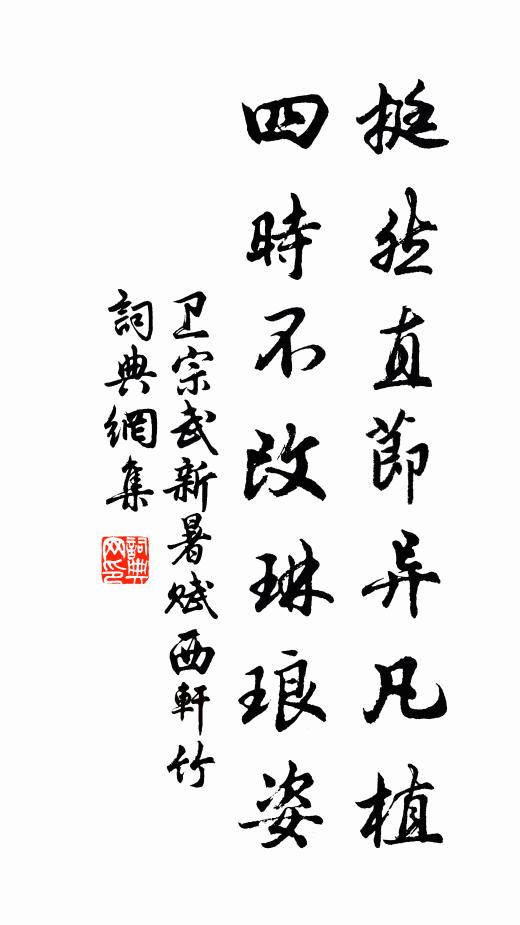 挺然直節异凡植
四時不改琳琅姿
卫宗武新暑赋西軒竹
詞典網集
詞典网印